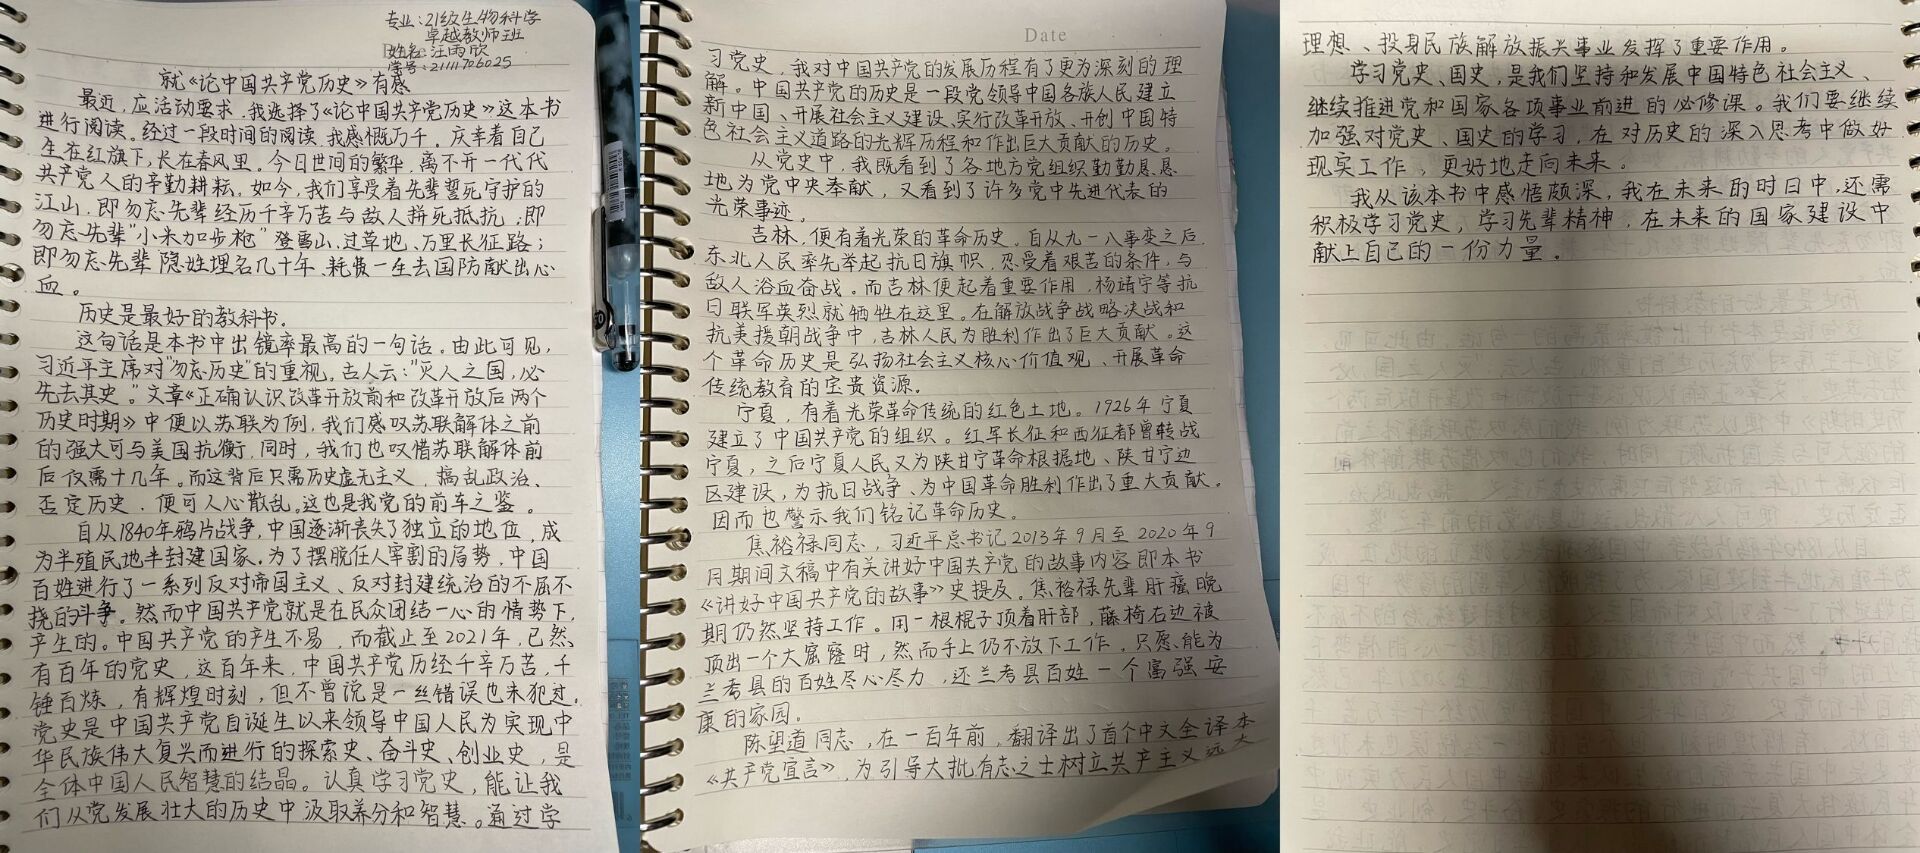 专业:21级生物科学
卓越教师班
姓名:汪雨欣
学号:2111706025
就《论中国共产党历史》有感
最近,应活动要求,我选择了《论中国共产党历史》这本书
进行阅读。经过一段时间的阅读,我感慨万千。庆幸着自己
生在红旗下,长在春风里。今日世间的繁华,离不开一代代
共产党人的辛勤耕耘。如今,我们享受着先辈誓死守护的
江山,即勿忘先辈经历千辛万苦与敌人拼死抵抗;即
勿忘先辈“小米加步枪”登雪山、过草地、万里长征路;
即勿忘先辈隐姓埋名几十年、耗费一生去国防献出心
血。
历史是最好的教科书。
这句话是本书中出镜率最高的一句话。由此可见,
习近平主席对“勿忘历史”的重视。古人云:“灭人之国,必
先去其史。”文章《正确认识改革开放前和改革开放后两个
历史时期》中便以苏联为例,我们感叹苏联解体之前
的强大可与美国抗衡,同时,我们也叹惜苏联解体前
后仅需十几年。而这背后只需历史虚无主义,搞乱政治、
否定历史,便可人心散乱。这也是我党的前车之鉴。
自从1840年鸦片战争,中国逐渐丧失了独立的地位,成
为半殖民地半封建国家。为了摆脱任人宰割的局势,中国
百姓进行了一系列反对帝国主义、反对封建统治的不屈不
挠的斗争。然而中国共产党就是在民众团结一心的情势下,
产生的。中国共产党的产生不易,而截止至2021年,已然
有百年的党史,这百年来,中国共产党历经千辛万苦,千
锤百炼,有辉煌时刻,但不曾说是一丝错误也未犯过。
党史是中国共产党自诞生以来领导中国人民为实现中
华民族伟大复兴而进行的探索史、奋斗史、创业史,是
全体中国人民智慧的结晶。认真学习党史,能让我
们从党发展壮大的历史中汲取养分和智慧。通过学
Date
习党史,我对中国共产党的发展历程有了更为深刻的理
解。中国共产党的历史是一段党领导中国各族人民建立
新中国、开展社会主义建设、实行改革开放、开创中国特
色社会主义道路的光辉历程和作出巨大贡献的历史。
从党史中,我既看到了各地方党组织勤勤恳恳
地为党中央奉献,又看到了许多党中先进代表的
光荣事迹。
吉林,便有着光荣的革命历史。自从九一八事变之后,
东北人民率先举起抗日旗帜,忍受着艰苦的条件,与
敌人浴血奋战。而吉林便起着重要作用,杨靖宇等抗
日联军英烈就牺牲在这里。在解放战争战略决战和
抗美援朝战争中,吉林人民为胜利作出了巨大贡献。这
个革命历史是弘扬社会主义核心价值观、开展革命
传统教育的宝贵资源。
宁夏,有着光荣革命传统的红色土地。1926年宁夏
建立了中国共产党的组织。红军长征和西征都曾转战
宁夏,之后宁夏人民又为陕甘宁革命根据地、陕甘宁边
区建设,为抗日战争、为中国革命胜利作出了重大贡献。
因而也警示我们铭记革命历史。
焦裕禄同志,习近平总书记2013年9月至2020年9
月期间文稿中有关讲好中国共产党的故事内容即本书
《讲好中国共产党的故事》史提及。焦裕禄先辈肝癌晚
期仍然坚持工作。用一根棍子顶着肝部,藤椅右边被
顶出一个大窟窿时,然而手上仍不放下工作,只愿能为
兰考县的百姓尽心尽力,还兰考县百姓一个富强安
康的家园。
陈望道同志,在一百年前,翻译出了首个中文全译本
《共产党宣言》,为引导大批有志之士树立共产主义远大
理想、投身民族解放振兴事业发挥了重要作用。
学习党史、国史,是我们坚持和发展中国特色社会主义、
继续推进党和国家各项事业前进的必修课。我们要继续
加强对党史、国史的学习,在对历史的深入思考中做好
现实工作,更好地走向未来。
我从该本书中感悟颇深,我在未来的时日中,还需
积极学习党史,学习先辈精神,在未来的国家建设中
献上自己的一份力量。